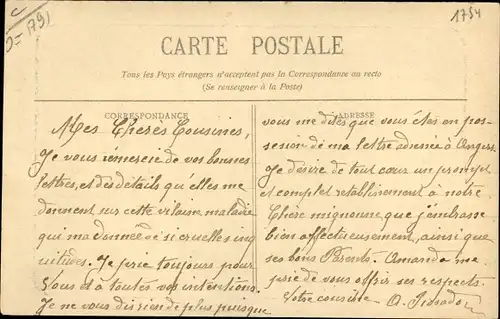 1754
CARTE POSTALE
Tous les Pays étrangers n'acceptent pas la Correspondance au recto
(Se renseigner à la Poste)
CORRESPONDANCE
Mes Chères Cousines,
Je vous remercie de vos bonnes
lettres, et des détails qu'elles me
donnent sur cette vilaine maladie
qui m'a donnée de si cruelles inq
uiétudes. Je prie toujours pour
Vous et à toutes vos intentions.
Je ne vous dis rien de plus puisque
ADRESSE
vous me dites que vous êtes en pos-
session de ma lettre adressée à Angers.
Je désire de tout cœur un prompt
et complet rétablissement à notre
Chère mignonne que j'embrasse
bien affectueusement, ainsi que
ses bons Parents. Amanda me
prie de vous offrir ses respects.
Votre cousine